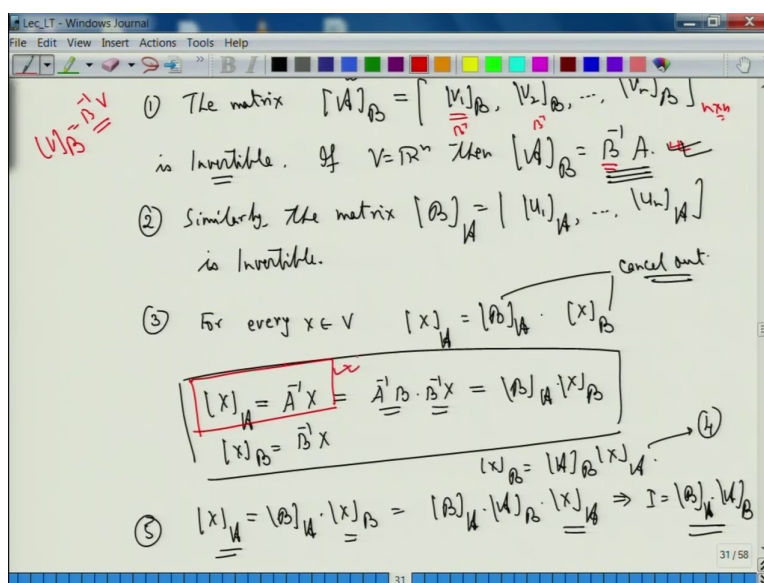 Lec_LT - Windows Journal
File Edit View Insert Actions Tools Help
[V]_B = B⁻¹V
① The matrix [A]_B = [ [V1]_B, [V2]_B, ..., [Vn]_B ] n×n
B⁻¹ B⁻¹
is Invertible. If V=ℝⁿ then [A]_B = B⁻¹ A.
② Similarly the matrix [B]_A = [ [u1]_A, ..., [un]_A ]
is Invertible.
cancel out.
③ For every x ∈ V [x]_A = [B]_A · [x]_B
[x]_A = A⁻¹x = A⁻¹B · B⁻¹x = [B]_A · [x]_B
[x]_B = B⁻¹x
[x]_B = [A]_B [x]_A. ④
⑤ [x]_A = [B]_A · [x]_B = [B]_A · [A]_B · [x]_A ⇒ I = [B]_A · [A]_B
31 / 58
31